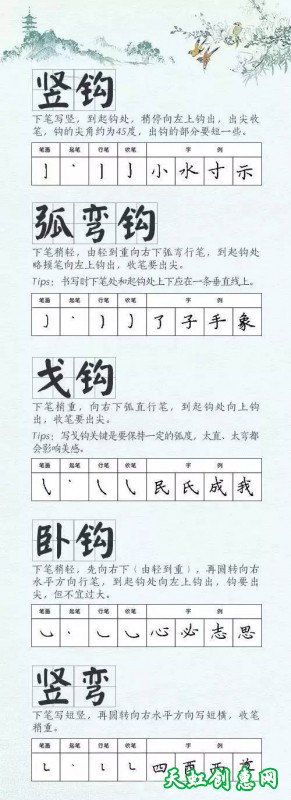 竖钩
下笔写竖，到起钩处，稍停向左上钩出，出尖收
笔，钩的尖角约为45度，出钩的部分要短一些。
笔画 起笔 行笔 收笔 字 例
小 水 寸 示
弧弯钩
下笔稍轻，由轻到重向右下弧弯行笔，到起钩处
略顿笔向左上钩出，收笔要出尖。
Tips：书写时下笔处和起钩处上下应在一条垂直线上。
笔画 起笔 行笔 收笔 字 例
了 子 手 象
戈钩
下笔稍重，向右下弧直行笔，到起钩处向上钩
出，收笔要出尖。
Tips：写戈钩关键是要保持一定的弧度，太直、太弯都
会影响美感。
笔画 起笔 行笔 收笔 字 例
民 氏 成 我
卧钩
下笔稍轻，先向右下（由轻到重），再圆转向右
水平方向行笔，到起钩处向左上钩出，钩要出
尖，但不宜过大。
笔画 起笔 行笔 收笔 字 例
心 必 志 思
竖弯
下笔写短竖，再圆转向右水平方向写短横，收笔
稍重。
笔画 起笔 行笔 收笔 字 例
四 酉 西
天虹创惠网